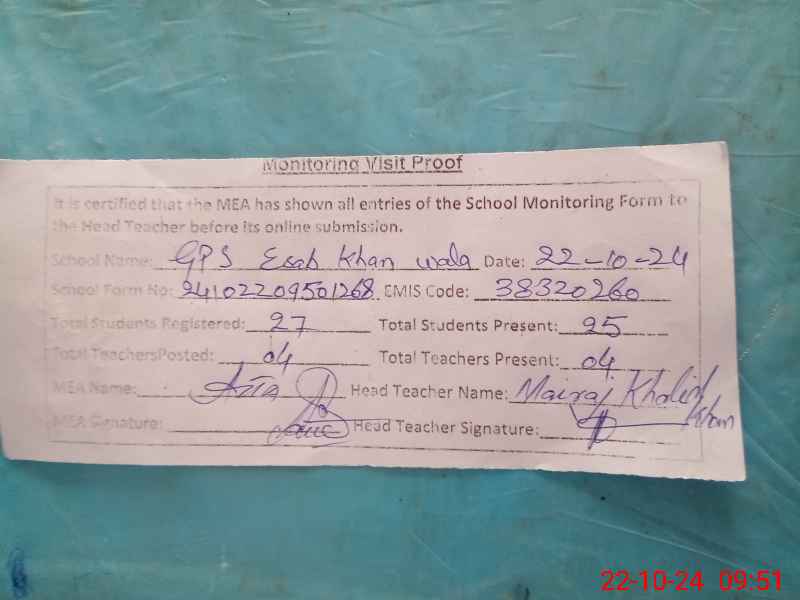 Monitoring Visit Proof
It is certified that the MEA has shown all entries of the School Monitoring Form to
the Head Teacher before its online submission.
School Name: GPS Esah Khan wala Date: 22-10-24
School Form No: 24102209501268 EMIS Code: 38320260
Total Students Registered: 27 Total Students Present: 25
Total TeachersPosted: 04 Total Teachers Present: 04
MEA Name: Head Teacher Name: Mairaj Khalid Khan
MEA Signature: Head Teacher Signature:
22-10-24 09:51